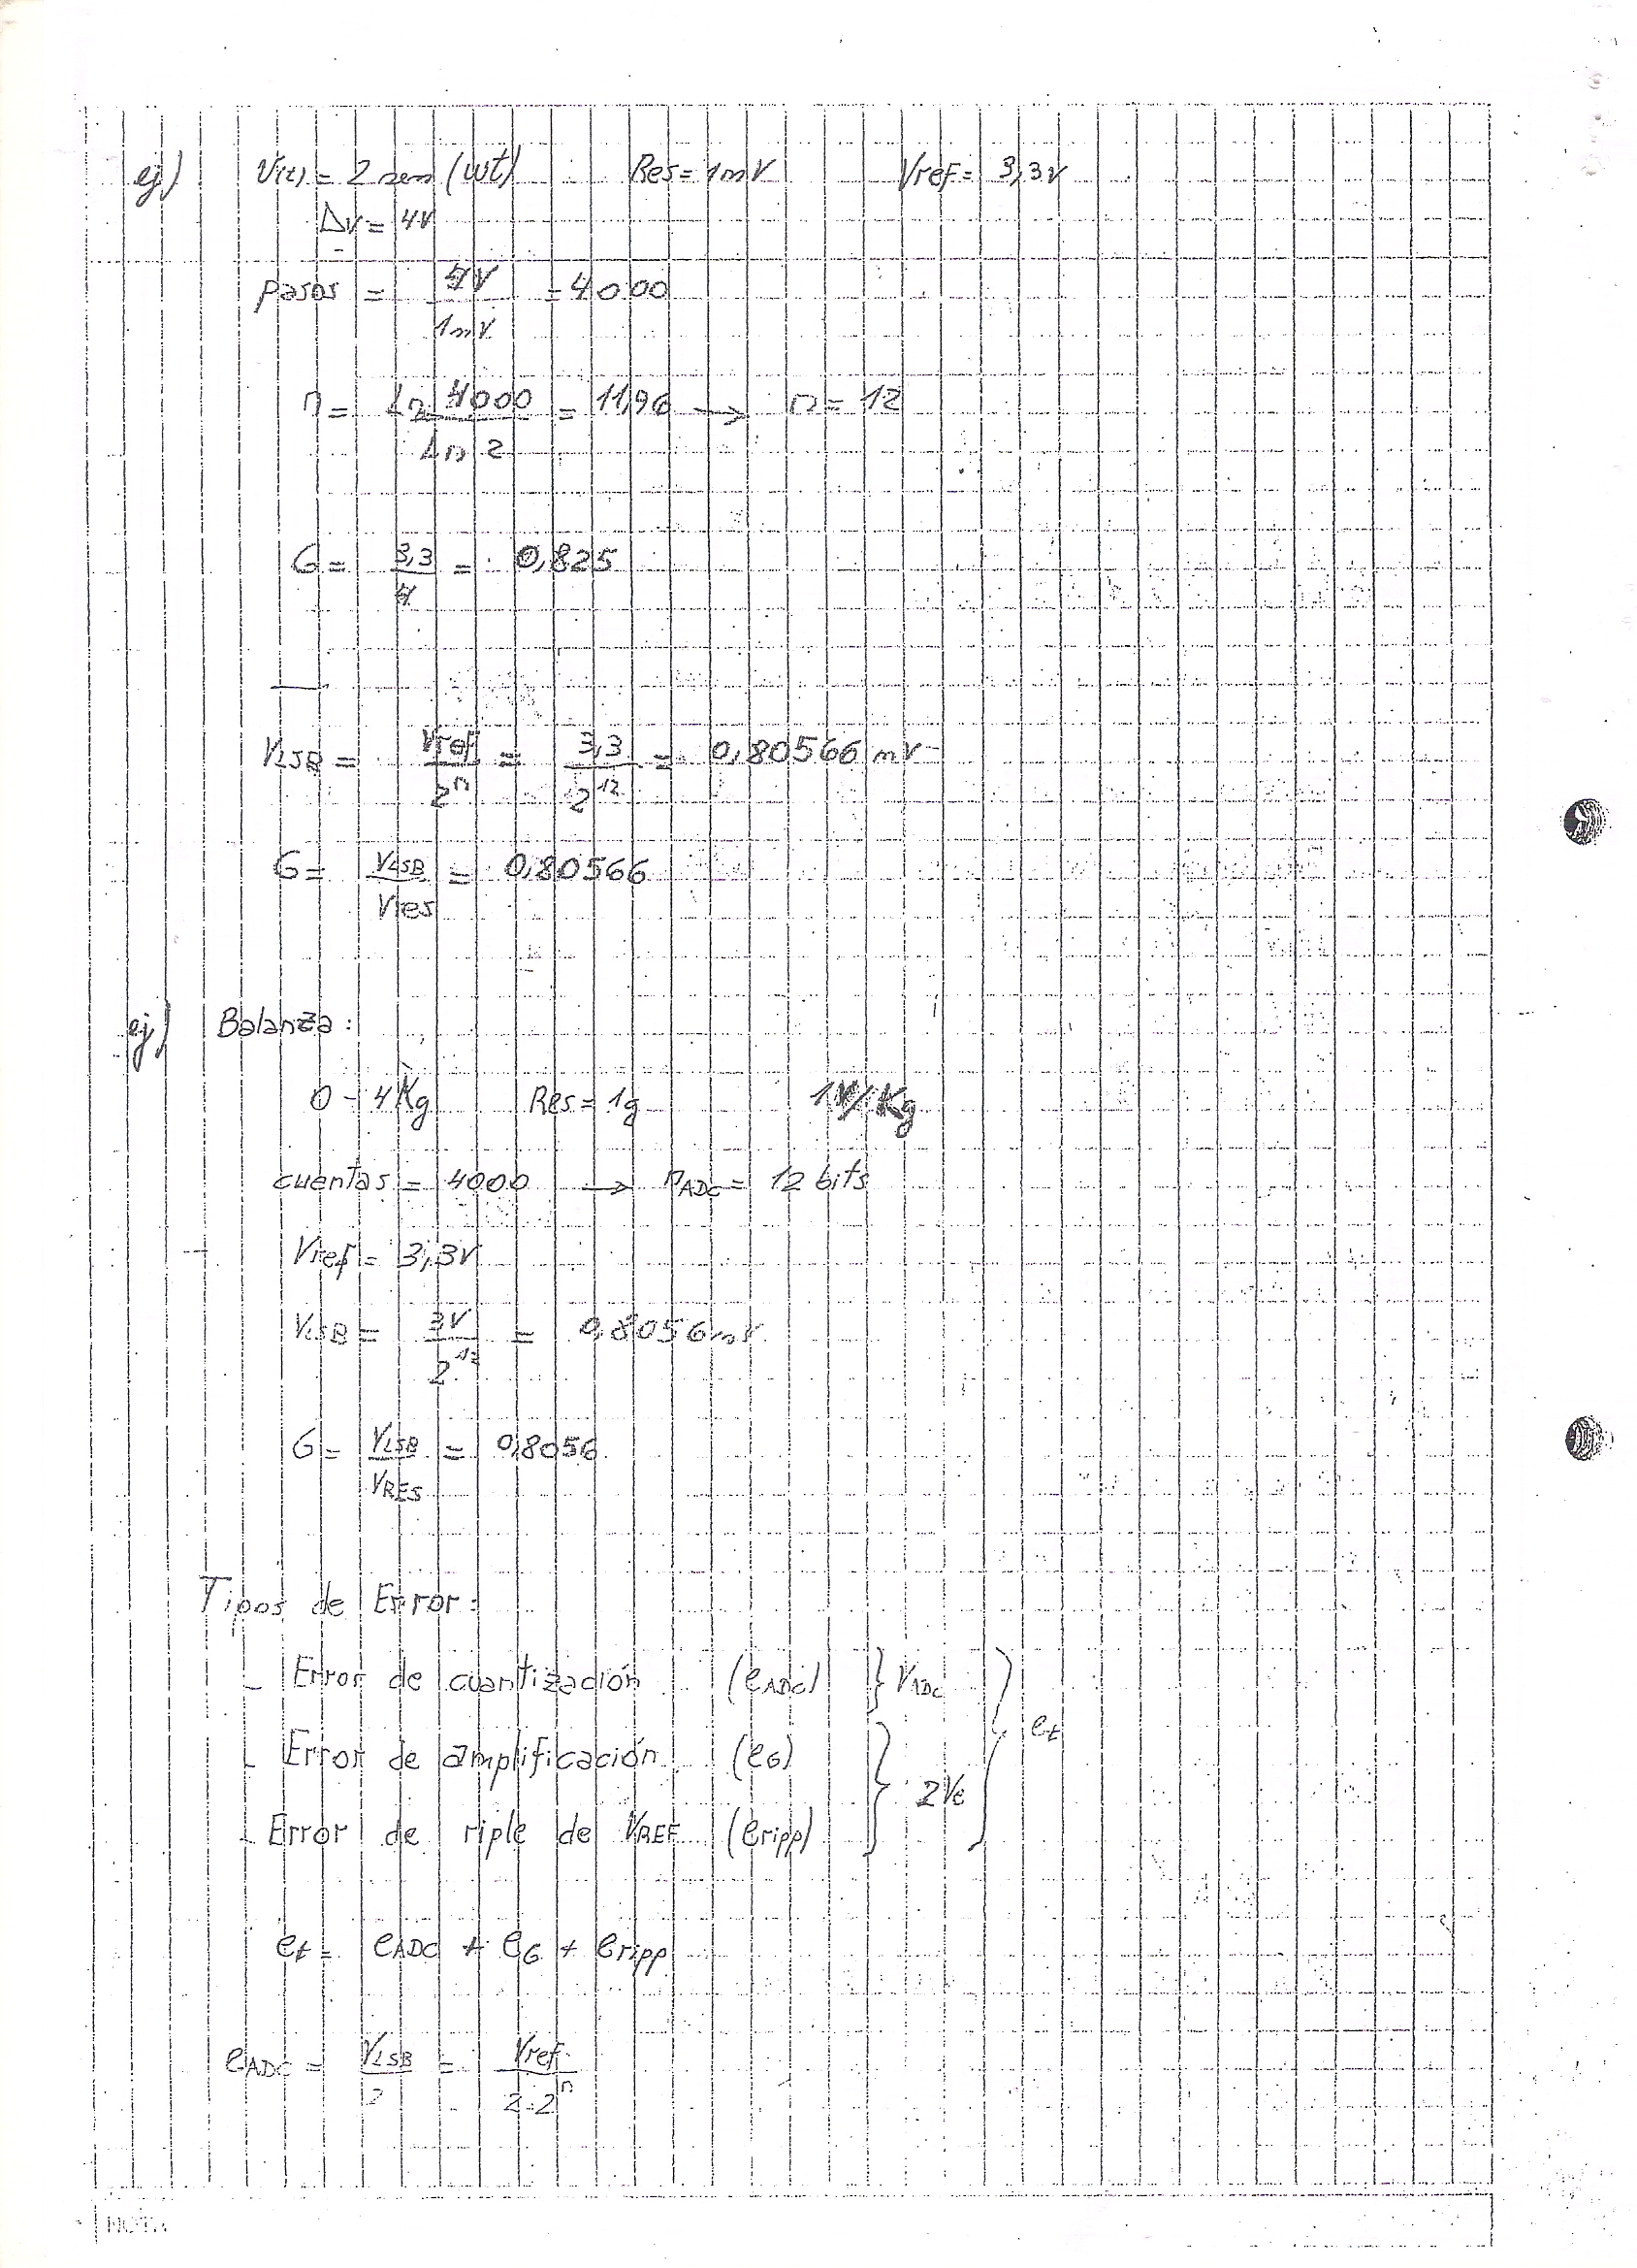 ej) V(t) = 2 sen (wt) Res = 1mV Vref = 3,3V
ΔV = 4V
pasos = 4V / 1mV = 4000
n = Ln 4000 / Ln 2 = 11,96 → n = 12
G = 3,3 / 4 = 0,825
VLSB = Vref / 2^n = 3,3 / 2^12 = 0,80566 mV
G = VLSB / Vres = 0,80566
ej) Balanza:
0 - 4Kg Res = 1g 1V/Kg
cuentas = 4000 → nADC = 12 bits
Vref = 3,3V
VLSB = 3V / 2^12 = 0,8056mV
G = VLSB / VRES = 0,8056
Tipos de Error:
- Error de cuantización (eADC) } VADC
- Error de amplificación (eG)
- Error de riple de VREF (eripp) } 2Ve ) et
et = eADC + eG + eripp
eADC = VLSB / 2 = Vref / 2.2^n
NOTA